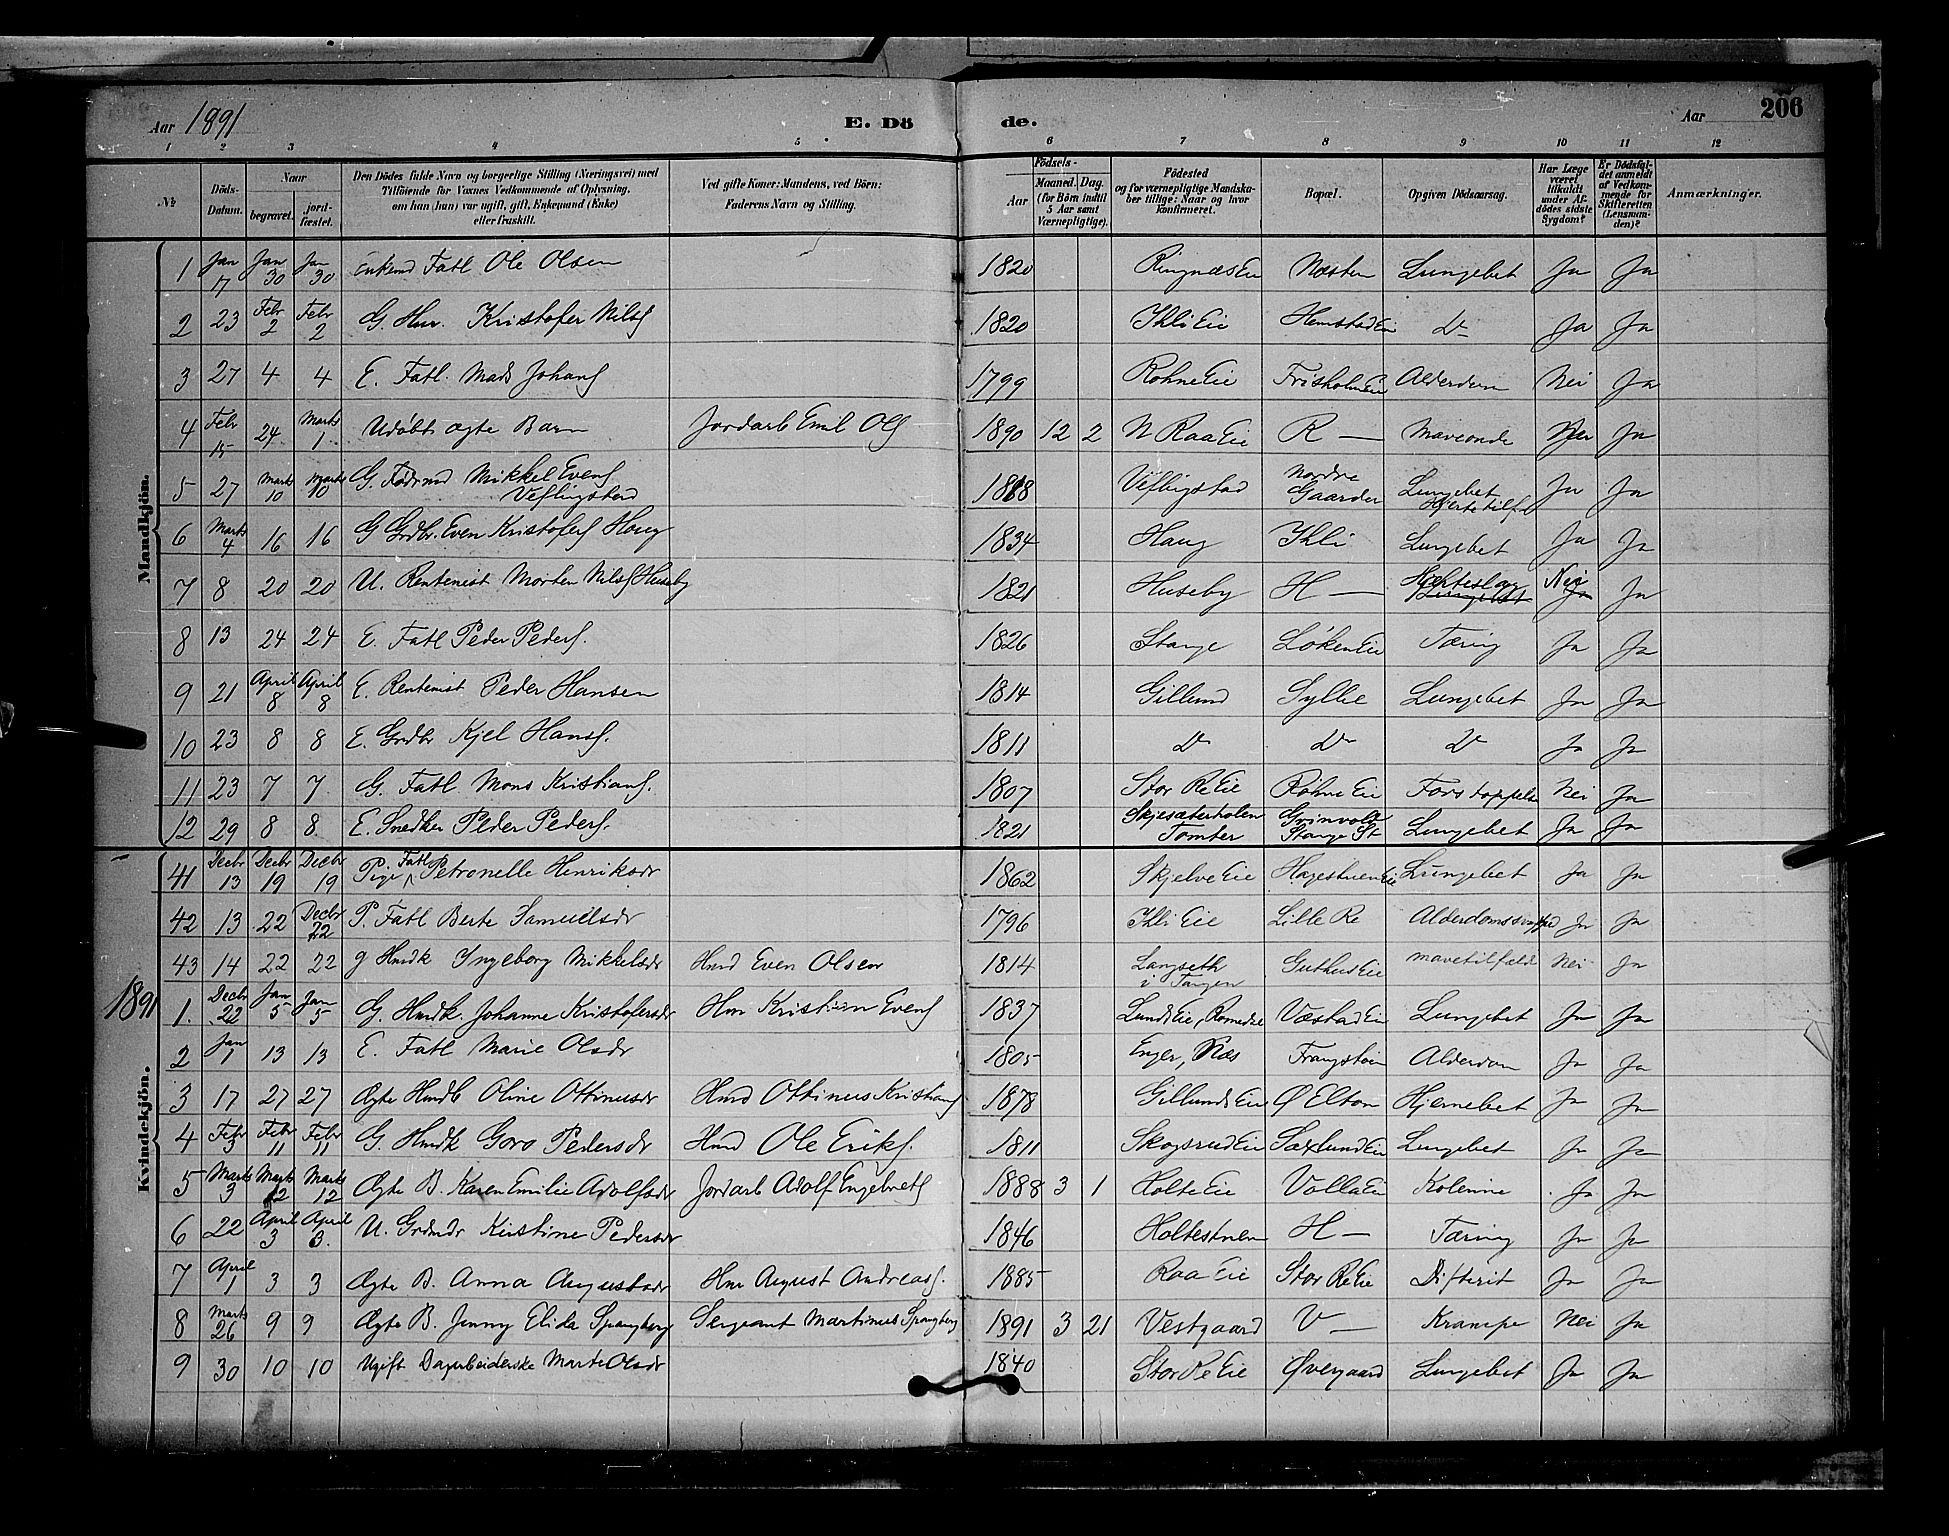 Aar 1891 E. Dö de. Aar 206
1 2 3 4 5 6 7 8 9 10 11 12
№ Döds-Datum. Naar begravet. jord-fæstet. Den Dödes fulde Navn og borgerlige Stilling (Næringsvei) med Tilföiende for Voxnes Vedkommende af Oplysning, om han (hun) var ugift, gift, Enkemand (Enke) eller fraskilt. Ved gifte Koner: Mandens, ved Börn: Faderens Navn og Stilling. Födsels- Aar Maaned. Dag. (for Börn indtil 5 Aar samt Værnepligtige). Födested og for værnepligtige Mandskaber tillige: Naar og hvor konfirmeret. Bopæl. Opgiven Dödsaarsag. Har Læge været tilkaldt under Afdödes sidste Sygdom? Er Dödsfaldet anmeldt af Vedkommende for Skifteretten (Lensmanden)? Anmærkninger.
Mandkjön.
1 Jan 17 Jan 30 Jan 30 Enkemd Fatl Ole Olsen 1820 Ringnæs Eie Næsten Lungebet Ja Ja
2 23 Febr 2 Febr 2 G. Hm. Kristofer Nilss 1820 Ihli Eie Hemstad Ei Do Ja Ja
3 27 4 4 E. Fatl. Mads Johans 1799 Rohne Eie Frisholm Ei Alderdom Nei Ja
4 Febr 15 24 Marts 1 Udöbt ægte Barn Jordarb Emil Ols 1890 12 2 N Raa Eie R — Maveonde Nei Ja
5 27 Marts 10 Marts 10 G. Födrmd Mikkel Evens Veflingstad 1818 Veflingstad Nordre Gaarder Lungebet Hjertetilf. Ja Ja
6 Marts 4 16 16 G Grdbr. Even Kristofers Haug 1834 Haug Ihli Lungebet Ja Ja
7 8 20 20 U. Rentenist Morten Nilss Huseby 1821 Huseby H — Hjerteslag Lungebet Nei Ja Ja
8 13 24 24 E. Fatl Peder Peders. 1826 Stange Löken Eie Tæring Ja Ja
9 21 April 8 April 8 E. Rentenist Peder Hansen 1814 Gillund Syllie Lungebet Ja Ja
10 23 8 8 E. Grdbr Kjel Hans. 1811 Do Do Do Ja Ja
11 23 7 7 G. Fatl Mons Kristians. 1807 Stor Re Eie Röhne Eie Forstoppelse Nei Ja
12 29 8 8 E. Snedker Peder Peders. 1821 Skjesæterholen Tomter Grinvold Stange St Lungebet Ja Ja
Kvindekjön.
41 Decbr 13 Decbr 19 Decbr 19 Pige Fatl Petronelle Henriksdr 1862 Skjelve Eie Hagestuen Eie Lungebet Ja Ja
42 13 22 Decbr 22 P. Fatl Berte Samuelsdr 1796 Ihli Eie Lille Re Alderdomssvaghed Ja Ja
43 14 22 22 g Hmdk Ingeborg Mikkelsdr Hmd Even Olsen 1814 Langseth i Tangen Guthus Eie Mavetilfælde Nei Ja
1891
1. Decbr 22 Jan 5 Jan 5 G. Hmdk. Johanne Kristofersdr Hm Kristian Evens 1837 Lunds Eie, Romedal Væstad Ei Lungebet Ja Ja
2 Jan 1 13 13 E. Fatl Marie Olsdr 1805 Enger, Næs Frangstöen Alderdom Ja Ja
3 17 27 27 Ægte Hmdb Oline Ottinusdr Hmd Ottinus Kristians 1878 Gillunds Eie Ö Elton Hjernebet Ja Ja
4 Febr 3 Febr 11 Febr 11 G. Hmdk Goro Pedersdr Hmd Ole Eriks. 1811 Skogsrud Ei Saxlund Ei Lungebet Ja Ja
5 Marts 3 Marts 12 Marts 12 Ægte B. Karen Emilie Adolfsdr Jordarb Adolf Engebrets 1888 3 1 Holte Eie Volla Ei Kolerine Ja Ja
6 22 April 3 April 3. U. Grdmdr Kristine Pedersdr 1846 Holtestuen H — Tæring Ja Ja
7 April 1 3 3 Ægte B. Anna Augustadr Hm August Andreas. 1885 Raa Eie Stor Re Eie Difterit Ja Ja
8 Marts 26 9 9 Ægte B. Jenny Elida Spangberg Sergeant Martinus Spangberg 1891 3 21 Vestgaard V — Krampe Nei Ja
9 30 10 10 Ugift Dagarbeiderske Marte Olsdr 1840 Stor Re Eie Övergaard Lungebet Ja Ja